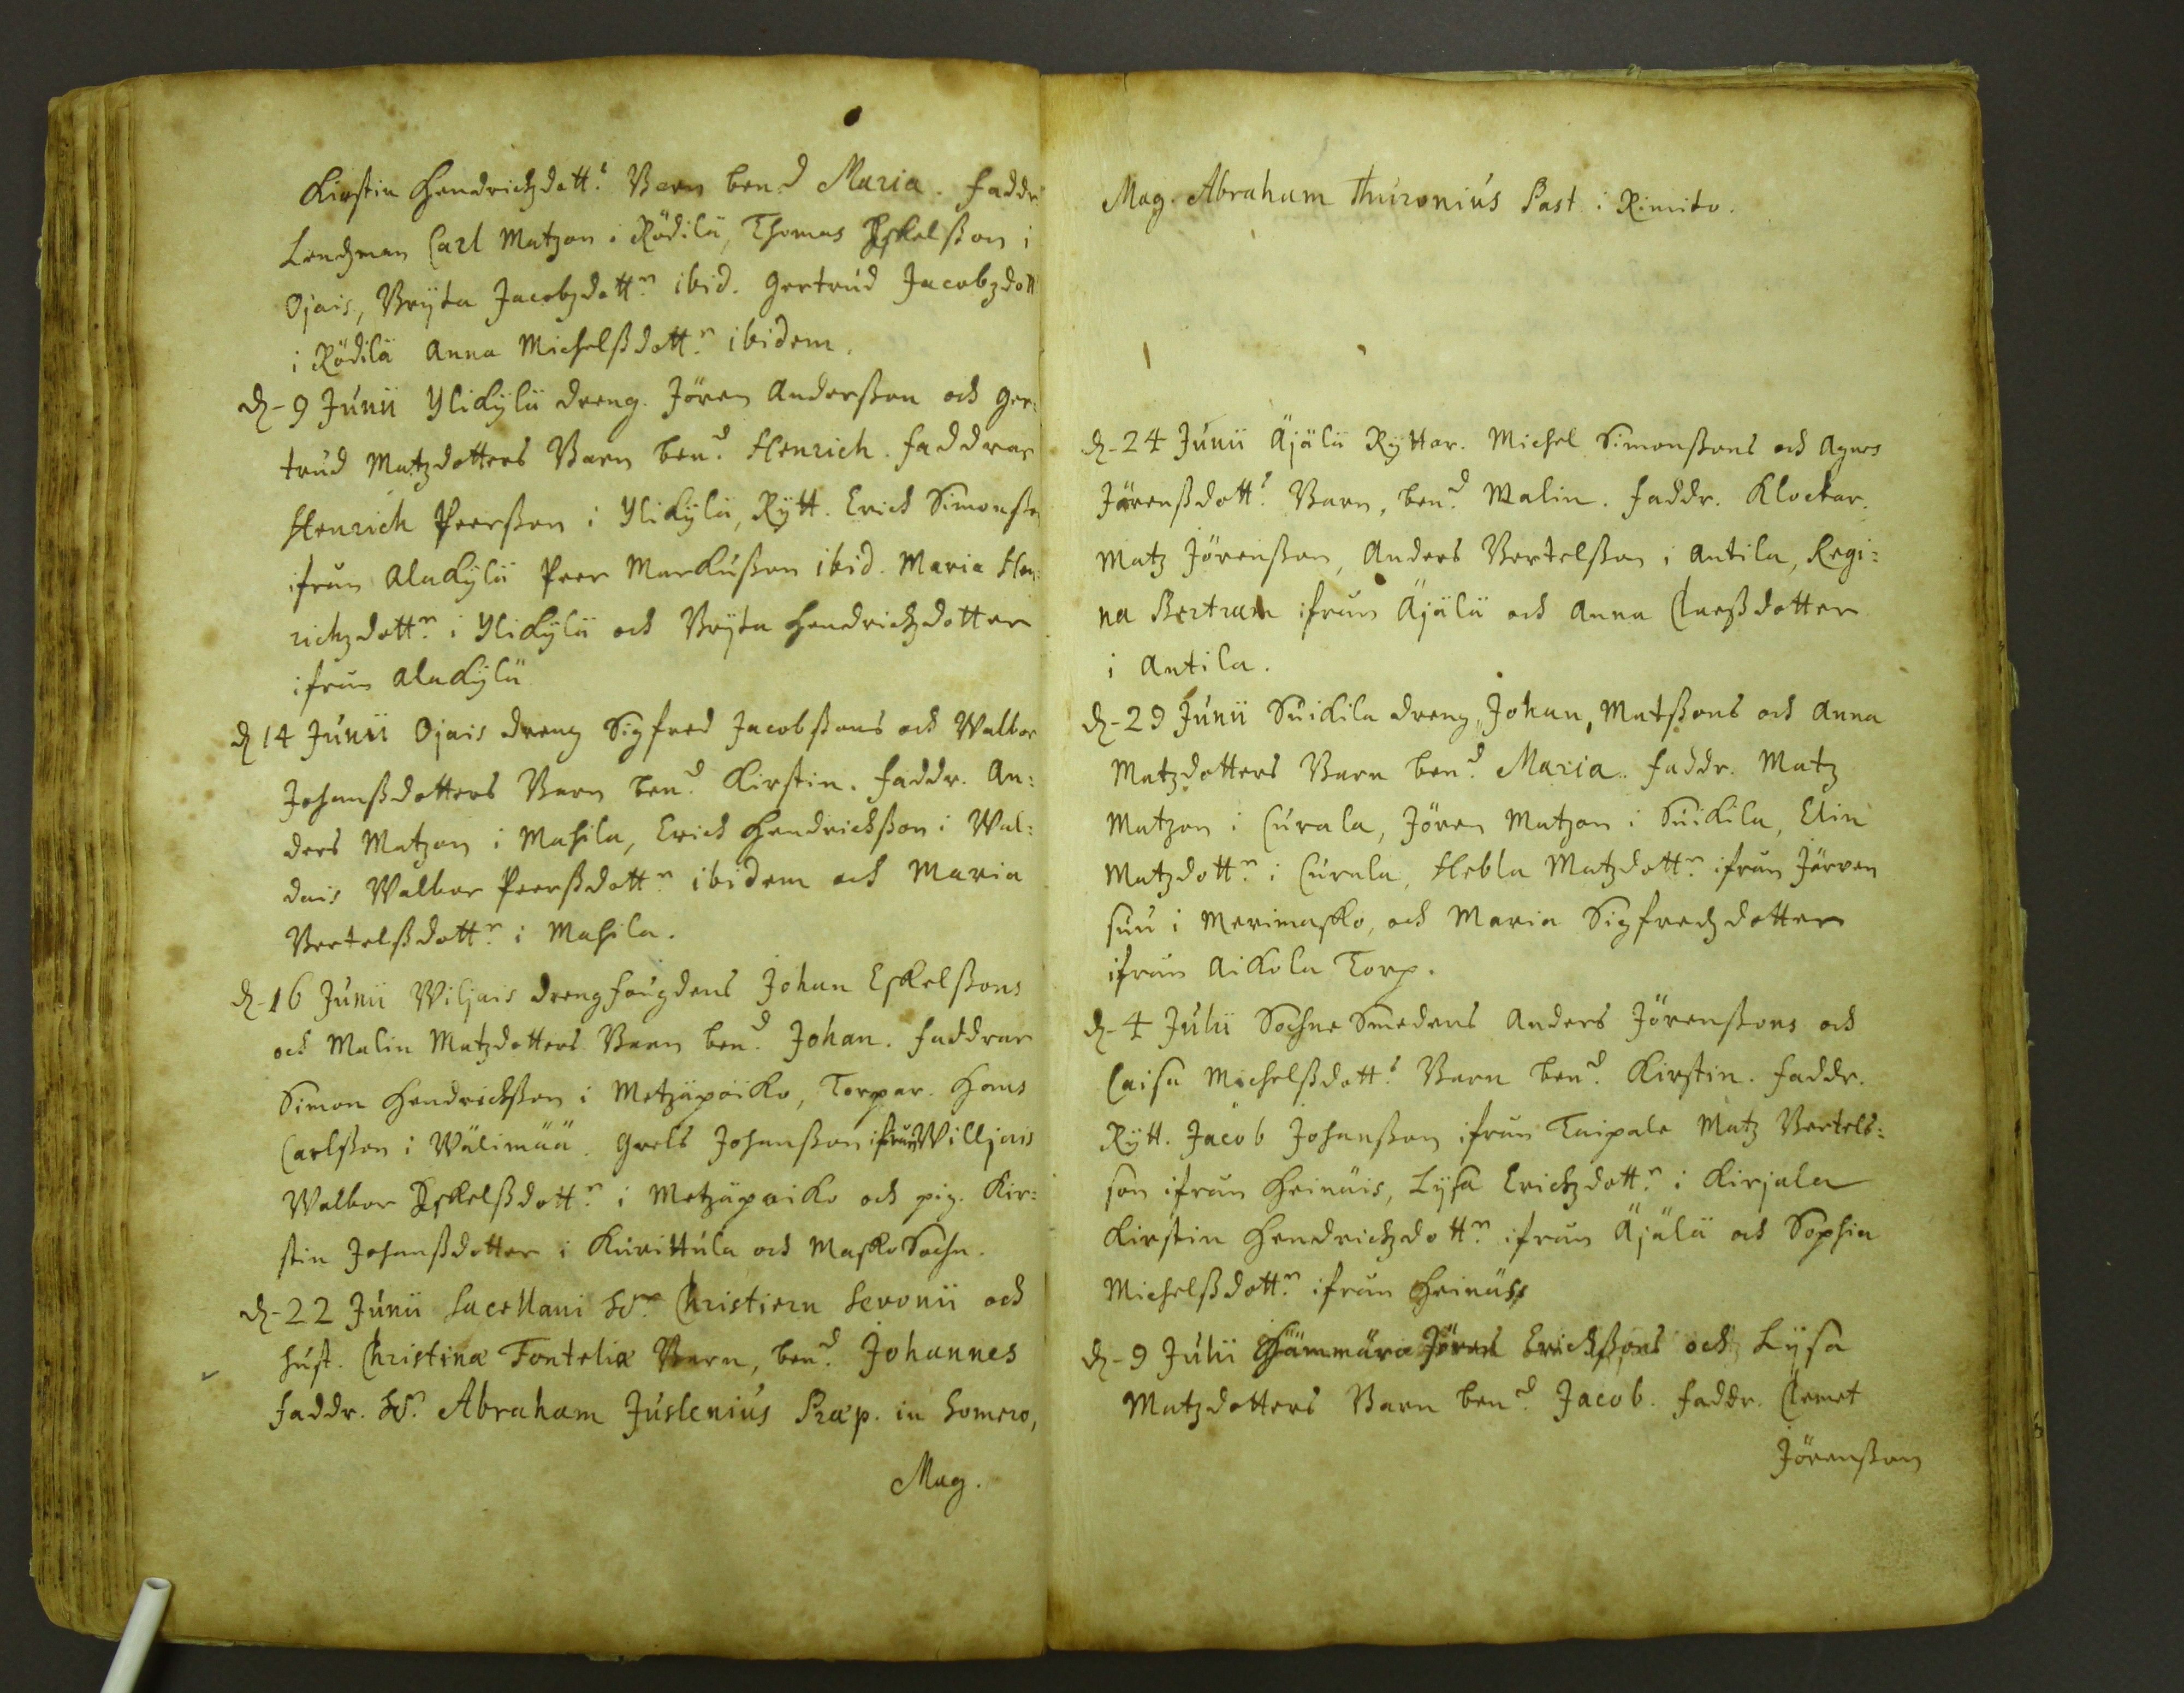 Kirstin Hendrichzdott.s Barn ben.d Maria. Faddr.
Lendzman Carl Matzon i Rödilä, Thomas Eskelßon i
Ojais, Bryta Jacobzdott.r ibid. Gertrud Jacobzdott
i Rödilä Anna Michelßdott.r ibidem.
d. 9 Junii Ylikylä dreng. Jören Anderßon och Ger:
trud Matzdotters Barn ben.d Henrich. Faddrar
Henrich Peerßon i Ylikylä, Rytt. Erich Simonßo
ifrån Alakylä Peer Markußon ibid. Maria Hen:
richzdott.r i Ylikylä och Bryta Hendrichzdotter
ifrån Alakylä
d. 14 Junii Ojais dreng Sigfred Jacobßons och Walbor
Johanßdotters Barn ben.d Kirstin. Faddr. An:
ders Matzon i Mahila, Erich Hendrichßon i Wal:
dais Walbor Peerßdott.r ibidem och Maria
Bertelßdott.r i Mahila.
d. 16 Junii Wiljais drengfougdens Johan Eskelßons
och Malin Matzdotters Barn ben.d Johan. Faddrar
Simon Hendrichßon i Metzäpoiko, Torpar. Hans
Carlßon i Wälimää. Grels Johanßon ifrån Williais
Walbor Eskelßdott.r i Metzäpoiko och pig. Kir:
stin Johanßdotter i Kurittula och Masko Sochn.
d. 22 Junii Sacellani H.r Christiern Seronii och
Hust. Christinæ Fonteliæ Barn, ben.d Johannes
Faddr. H.r Abraham Juslenius Præp. in Somero,
Mag.
Mag. Abraham Thuronius Past. i Rimito.
d. 24 Junii Äjälä Ryttar. Michel Simonßons och Agnes
Jörenßdott.s Barn, ben.d Malin. Faddr. Klockar.
Matz Jörenßon, Anders Bertelßon i Antila, Regi:
na Bertram ifrån Äjälä och Anna Claeßdotter
i Antila.
d. 29 Junii Suikila dreng, Johan, Matßons och Anna
Matzdotters Barn ben.d Maria. Faddr. Matz
Matzon i Curala, Jören Matzon i Suikila, Elin
Matzdott.r i Curala, Hebla Matzdott.r ifrån Järven
suu i Merimasko, och Maria Sigfredzdotter
ifrån Aikola Torp.
d. 4 Julii Sochne Smedens Anders Jörenßons och
Caisa Michelßdott.s Barn ben.d Kirstin. Faddr.
Rytt. Jacob Johanßon ifrån Taipale Matz Bertels:
son ifrån Heinäis, Lysa Erichzdott.r i Kirjala
Kirstin Hendrichzdott.r ifrån Äjälä och Sophia
Michelßdott.r ifrån Heinäis
d. 9 Julii Hämmärö Jören Erichßons och Lysa
Matzdotters Barn ben.d Jacob. Faddr. Clemet
Jörenßon